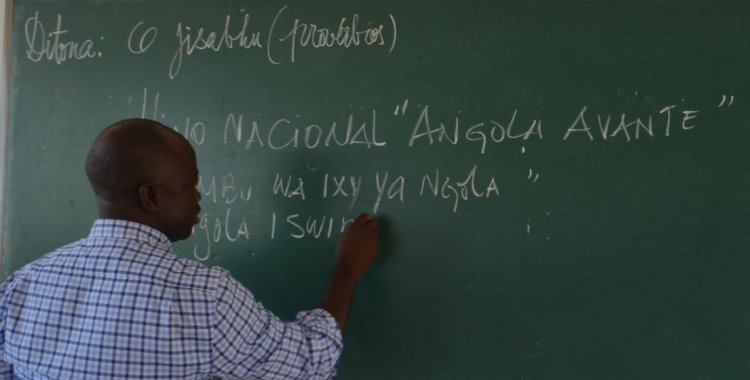 Ditona: 6 jisabhu (provérbios)
NACIONAL "ANGOLA AVANTE"
WA IXY YA NGOLA"
ISWI